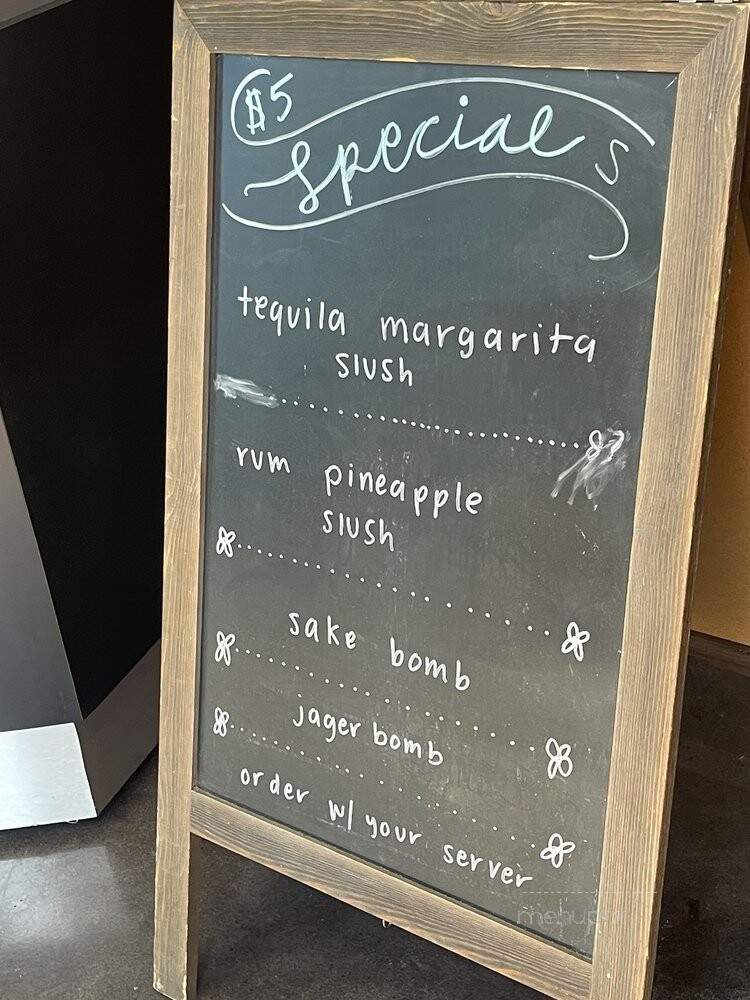 $5
Specials
tequila margarita
slush
rum pineapple
slush
sake bomb
jager bomb
order w/ your server